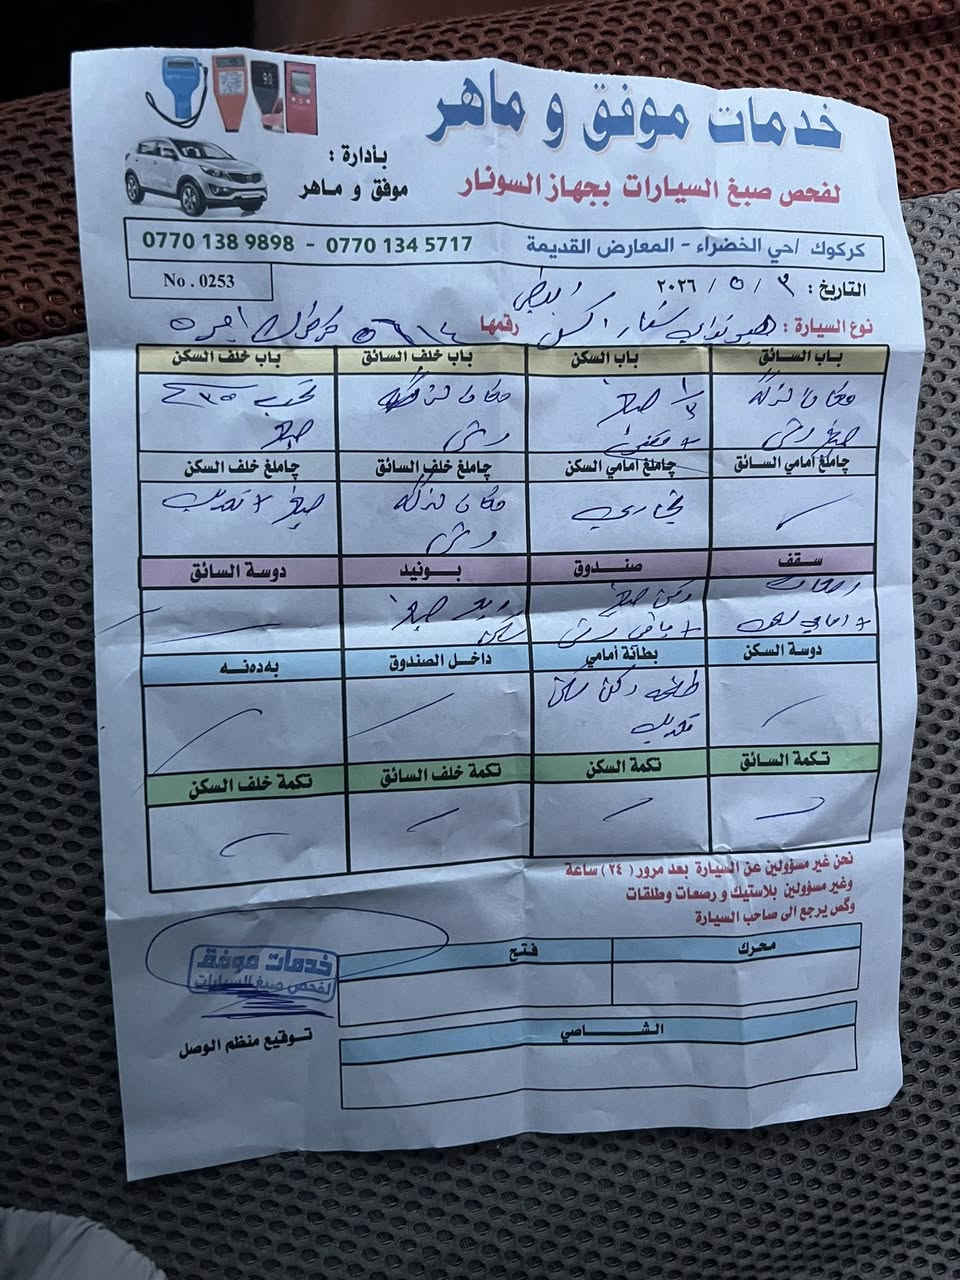 خدمات موفق و ماهر
لفحص صبغ السيارات بجهاز السونار
بأدارة :
موفق و ماهر
كركوك /حي الخضراء - المعارض القديمة 0770 134 5717 - 0770 138 9898
No . 0253
التاريخ : ٣ / ٥ / ٢٠٢٦
نوع السيارة : رقمها
باب السائق باب السكن باب خلف السائق باب خلف السكن
صبغ رش ١/٣ صبغ رش صبغ
چاملغ أمامي السائق چاملغ أمامي السكن چاملغ خلف السائق چاملغ خلف السكن
تجاري رش صبغ + تعديل
سقف صندوق بونيد دوسة السائق
ركن صبغ + باقي رش ربع صبغ سكن
دوسة السكن بطانة أمامي داخل الصندوق بەدەنە
ركن سكن تعديل
تكمة السائق تكمة السكن تكمة خلف السائق تكمة خلف السكن
نحن غير مسؤولين عن السيارة بعد مرور ( ٢٤ ) ساعة
وغير مسؤولين بلاستيك و رصعات وطلقات
وگص يرجع الى صاحب السيارة
محرك فتح
الشاصي
خدمات موفق
لفحص صبغ السيارات
توقيع منظم الوصل